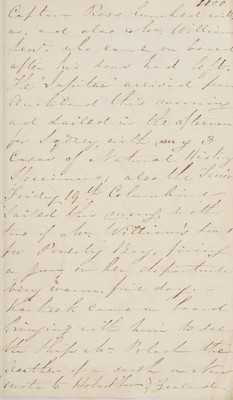 Captain Ross lunched with
us, and also Mr. William
who came on board
after his sons had left.
The "Jupiter" arrived from
Auckland this morning
and sailed in the afternoon
for Sydney with my 3
Cases of Natural History
Specimens; also the
Friday 19th Columbine
sailed this morng. with
two of Mr. William's sons
for Poverty Bay, firing
a gun on her departure
very warm fine day. –
came on board
bringing with him to see
the Ship Mr. Polack the
author of a work on New
Zealand.